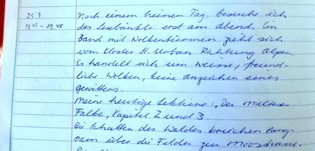 25.7
19.15 - 19.45
Nach einem heissen Tag, besuche ich
das Lesebänkli erst am Abend. Ein
Band mit Wolkentürmen zieht sich
vom Kloster St. Urban Richtung Alpen.
Es handelt sich um weisse, freund-
liche Wolken, keine Anzeichen eines
Gewitters.
Meine heutige Lektüre: der Malteser
Falke, Kapitel 2 und 3
Die Schatten des Waldes kriechen lang-
sam über die Felder zur Moosstrasse.